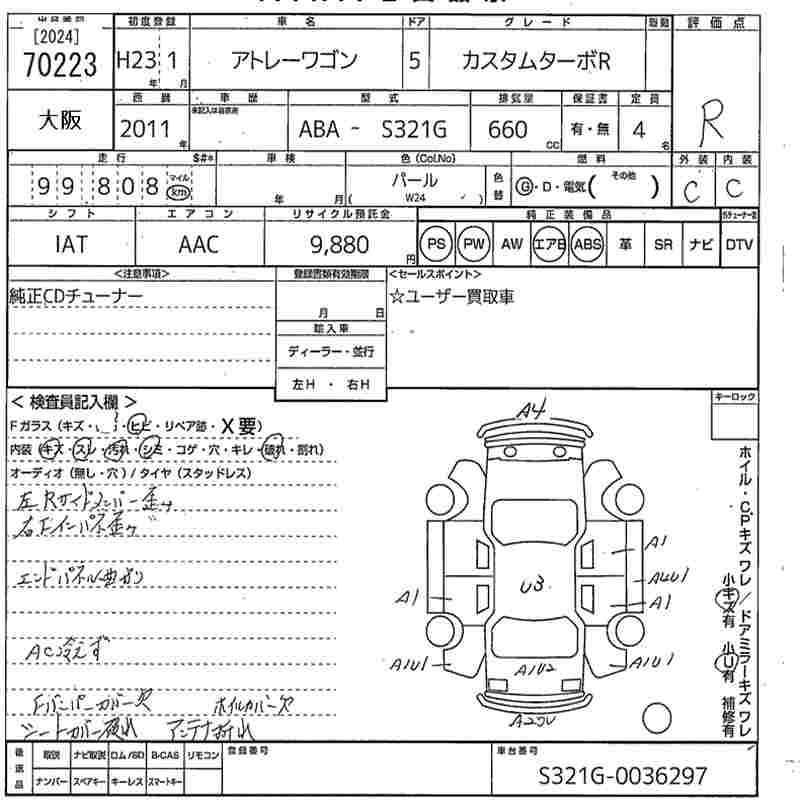 初度登録 車名 ドア グレード 評価点
[2024]
70223 H23 1 アトレーワゴン 5 カスタムターボR R
年 月
大阪 西暦 車歴 型式 排気量 保証書 定員
2011年 ABA - S321G 660 cc 有・無 4名
走行 S#* 車検 色(Col.No) 燃料 外装 内装
99808 マイル km 年 月 パール ( W24 ) 色替 G・D・電気( その他 ) C C
シフト エアコン リサイクル預託金 純正装備品
IAT AAC 9,880円 PS PW AW エアB ABS 革 SR ナビ DTV
<注意事項> 登録書類有効期限 <セールスポイント>
純正CDチューナー 月 日 ☆ユーザー買取車
輸入車
ディーラー・並行
左H ・ 右H
< 検査員記入欄 > キーロック
Fガラス(キズ・ ・ヒビ・リペア跡・X要)
内装(キズ・スレ・汚れ・シミ・コゲ・穴・キレ・破れ・割れ)
オーディオ(無し・穴)/タイヤ(スタッドレス)
左Rサイドメンバー歪ｹ
右Fインパネ歪ｹﾞ
エンドパネル曲がり
AC冷えず
Fバンパーカバー欠 ホイルカバー欠
シートカバー破れ アンテナ折れ
A4
A1
A4U1
U3
A1
A1
A1U1
A1U2
A1U1
ホイル・CPキズ ワレ/ドアミラーキズ ワレ
小キズ有 小U有 補修有
後送品 取説 ナビ取説 ロム/SD B-CAS リモコン 登録番号 車台番号
ナンバー スペアキー キーレス スマートキー S321G-0036297